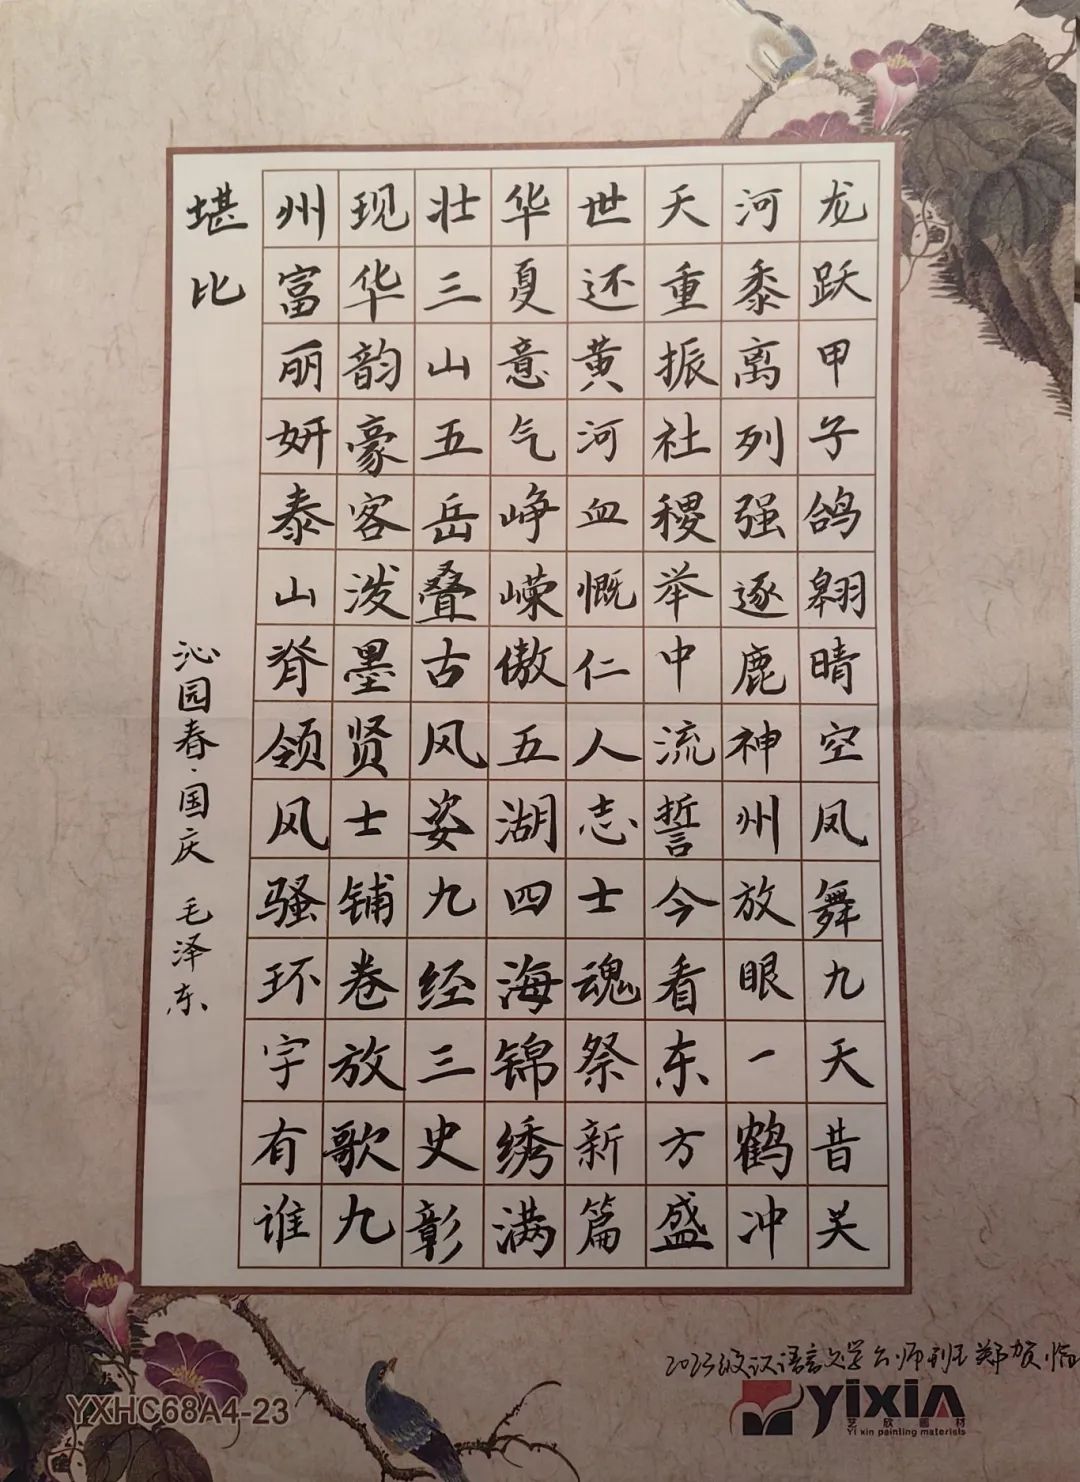 龙跃甲子鸽翱晴空凤舞九天昔关
河黍离列强逐鹿神州放眼一鹤冲
天重振社稷举中流誓今看东方盛
世还黄河血慨仁人志士魂祭新篇
华夏意气峥嵘傲五湖四海锦绣满
壮三山五岳叠古风姿九经三史彰
现华韵豪客泼墨贤士铺卷放歌九
州富丽妍泰山脊领风骚环宇有谁
堪比
沁园春·国庆 毛泽东
2023级汉语言文学公师班 郑贺 临
YXHC68A4-23
yixin
艺欣画材
Yi xin painting materials